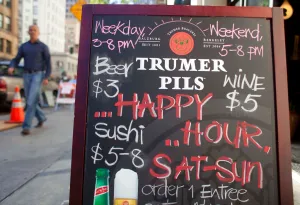 Weekday, Weekend,
5-8pm 5-8pm
TRUMER
PILS
Beer
$3
WINE
$5
...HAPPY
...HOUR,
Sushi
$5-8
SAT-SUN
order 1 Entree